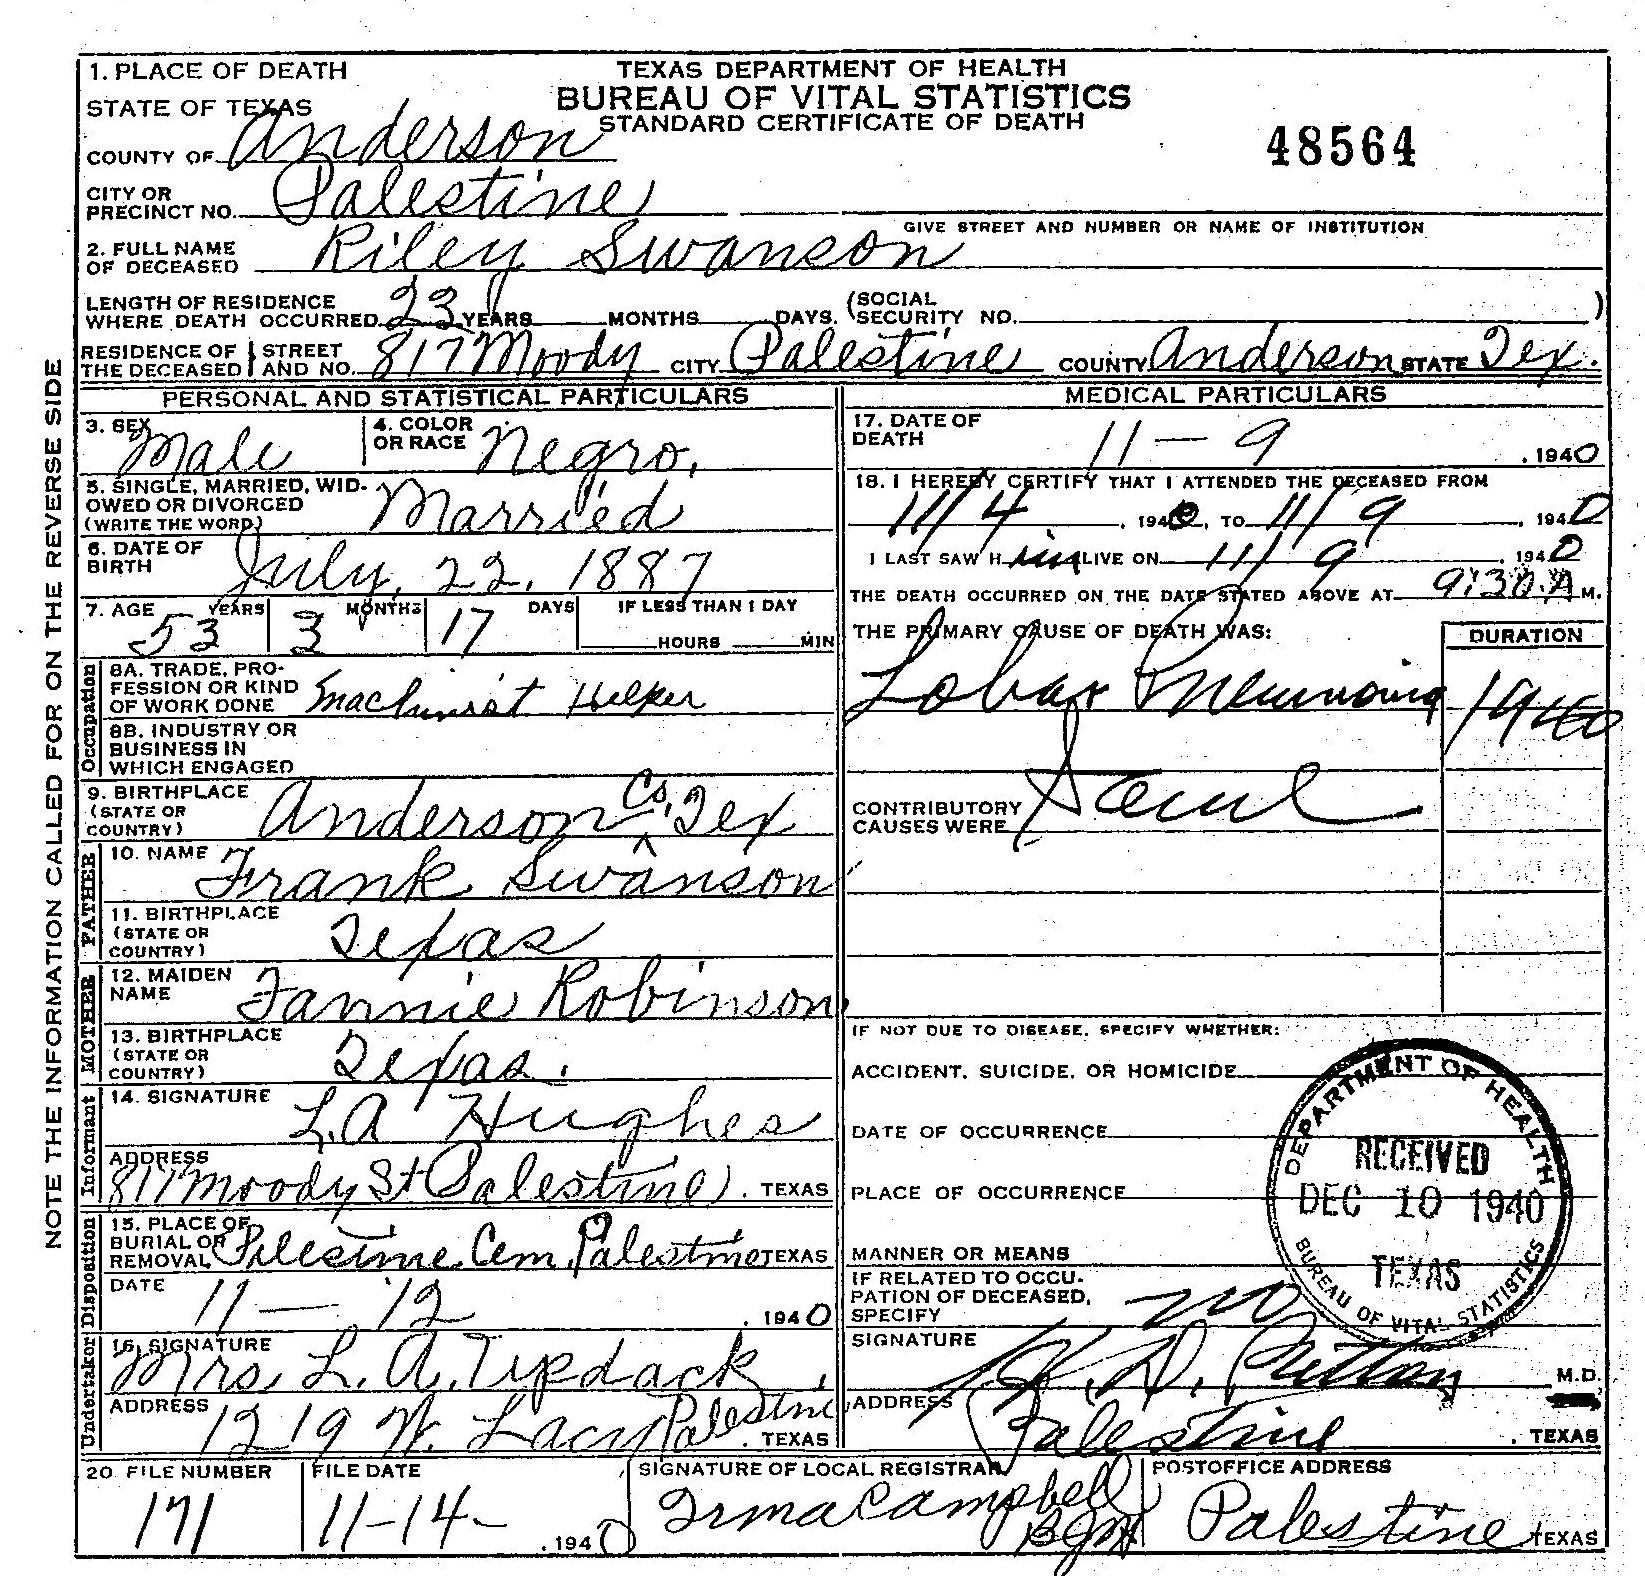 1. PLACE OF DEATH
STATE OF TEXAS
COUNTY OF Anderson
CITY OR PRECINCT NO. Palestine
TEXAS DEPARTMENT OF HEALTH
BUREAU OF VITAL STATISTICS
STANDARD CERTIFICATE OF DEATH
48564
GIVE STREET AND NUMBER OR NAME OF INSTITUTION
2. FULL NAME OF DECEASED Riley Swanson
LENGTH OF RESIDENCE WHERE DEATH OCCURRED 23 YEARS MONTHS DAYS. (SOCIAL SECURITY NO. )
RESIDENCE OF THE DECEASED STREET AND NO. 817 Moody CITY Palestine COUNTY Anderson STATE Tex.
PERSONAL AND STATISTICAL PARTICULARS
3. SEX Male 4. COLOR OR RACE Negro.
5. SINGLE, MARRIED, WIDOWED OR DIVORCED (WRITE THE WORD) Married
6. DATE OF BIRTH July, 22, 1887
7. AGE YEARS 53 MONTHS 3 DAYS 17 IF LESS THAN 1 DAY HOURS MIN
Occupation
8A. TRADE, PROFESSION OR KIND OF WORK DONE Machinist Helper
8B. INDUSTRY OR BUSINESS IN WHICH ENGAGED
9. BIRTHPLACE (STATE OR COUNTRY) Anderson Co, Tex
FATHER
10. NAME Frank Swanson
11. BIRTHPLACE (STATE OR COUNTRY) Texas
MOTHER
12. MAIDEN NAME Fannie Robinson
13. BIRTHPLACE (STATE OR COUNTRY) Texas.
Informant
14. SIGNATURE L.A Hughes
ADDRESS 817 Moody St Palestine. TEXAS
Disposition
15. PLACE OF BURIAL OR REMOVAL Palestine Cem. Palestine TEXAS
DATE 11 — 12 , 1940
Undertaker
16. SIGNATURE Mrs. L. A.
ADDRESS 1219 W. Lacy Palestine. TEXAS
MEDICAL PARTICULARS
17. DATE OF DEATH 11 — 9 , 1940
18. I HEREBY CERTIFY THAT I ATTENDED THE DECEASED FROM
11/4 , 1940, TO 11/9 , 1940
I LAST SAW HIM ALIVE ON 11/9 , 1940
THE DEATH OCCURRED ON THE DATE STATED ABOVE AT 9:30 A M.
THE PRIMARY CAUSE OF DEATH WAS: DURATION
Lobar Pneumonia 1940
CONTRIBUTORY CAUSES WERE
IF NOT DUE TO DISEASE, SPECIFY WHETHER:
ACCIDENT, SUICIDE, OR HOMICIDE
DATE OF OCCURRENCE
PLACE OF OCCURRENCE
MANNER OR MEANS
IF RELATED TO OCCUPATION OF DECEASED, SPECIFY no
SIGNATURE M.D.
ADDRESS Palestine. TEXAS
DEPARTMENT OF HEALTH
RECEIVED
DEC 10 1940
TEXAS
BUREAU OF VITAL STATISTICS
20. FILE NUMBER 171
FILE DATE 11-14- , 1940
SIGNATURE OF LOCAL REGISTRAR Irma Campbell
POSTOFFICE ADDRESS Palestine TEXAS
NOTE THE INFORMATION CALLED FOR ON THE REVERSE SIDE